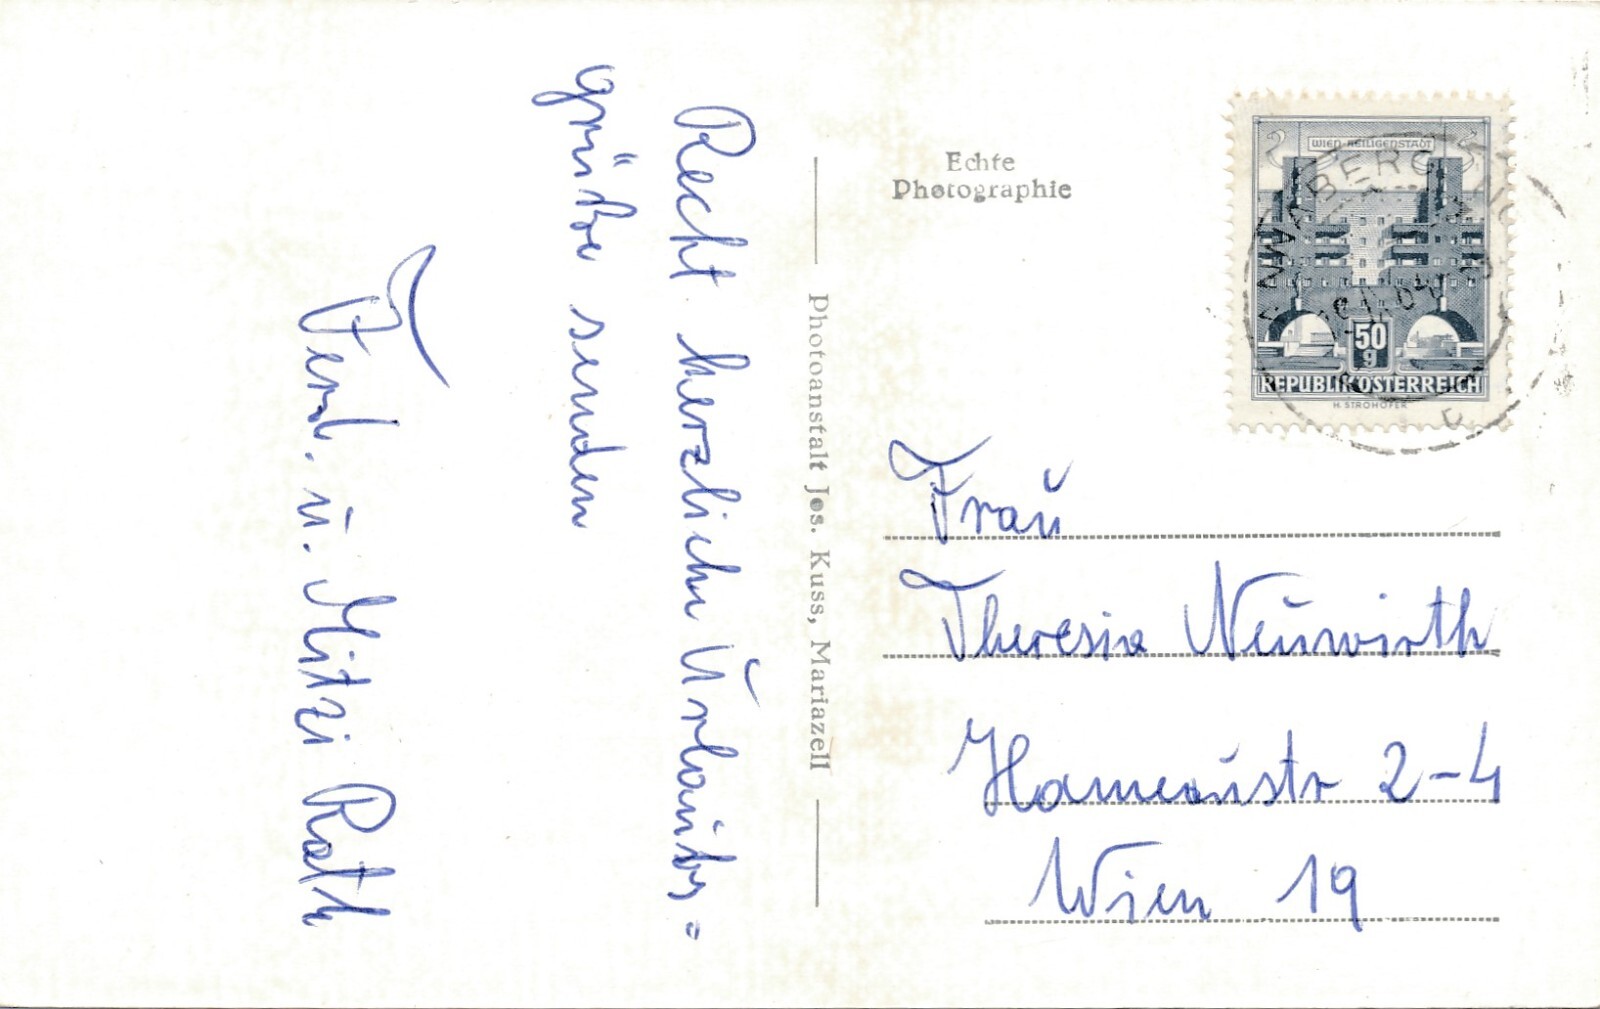 Recht herzliche Urlaubs=
grüße senden
Ferd. u. Mitzi Rath
Photoanstalt Jos. Kuss, Mariazell
Echte
Photographie
WIEN-HEILIGENSTADT
50
g
REPUBLIK ÖSTERREICH
H. STROHOFER
Frau
Theresia Neuwirth
Hameaustr 2-4
Wien 19